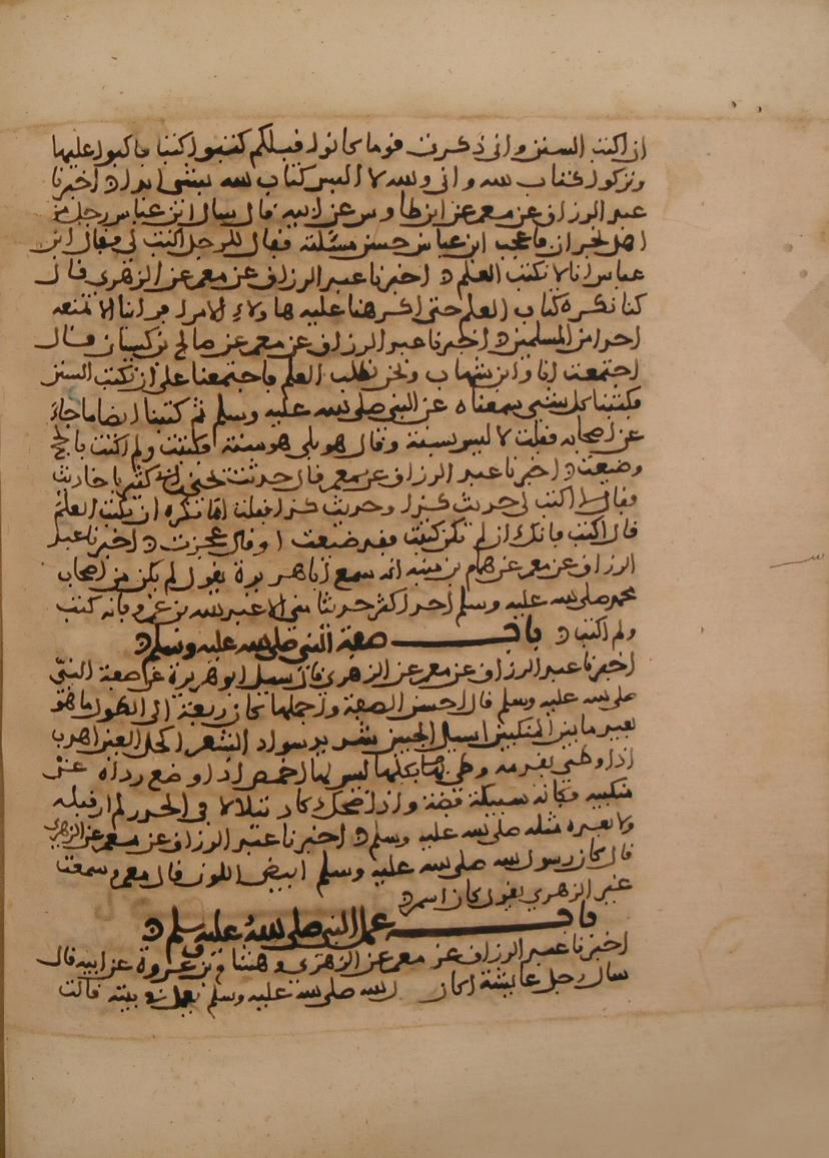 ان اكتب السنن واني ذكرت قوما كانوا قبلكم كتبوا كتبا فاكبوا عليها
وتركوا كتاب الله واني والله لا البس كتاب الله بشي ابدا اخبرنا
عبد الرزاق عن معمر عن ابن طاوس عن ابيه قال سال ابن عباس رجل من
اهل نجران فاعجب ابن عباس حسن مسئلته فقال الرجل اكتب لي فقال ابن
عباس انا لا نكتب العلم اخبرنا عبد الرزاق عن معمر عن الزهري قال
كنا نكره كتاب العلم حتى اكرهنا عليه هاولاء الامرا فراينا الا نمنعه
احدا من المسلمين اخبرنا عبد الرزاق عن معمر عن صالح بن كيسان قال
اجتمعت انا وابن شهاب ونحن نطلب العلم فاجتمعنا على ان نكتب السنن
فكتبنا كل شي سمعناه عن النبي صلى الله عليه وسلم ثم كتبنا ايضا ما جاء
عن اصحابه فقلت لا ليس بسنة وقال هو بلى هو سنة فكتب ولم اكتب فانجح
وضيعت اخبرنا عبد الرزاق عن معمر قال حدثت يحيى بن ابي كثير باحاديث
فقال لي اكتب لي حديث كذا وحديث كذا فقلت اما تكره ان نكتب العلم
قال اكتب فانك ان لم تكن كتبت فقد ضيعت او قال عجزت اخبرنا عبد
الرزاق عن معمر عن همام بن منبه انه سمع ابا هريرة يقول لم يكن من اصحاب
محمد صلى الله عليه وسلم احد اكثر حديثا مني الا عبد الله بن عمرو فانه كتب
ولم اكتب باب صفة النبي صلى الله عليه وسلم
اخبرنا عبد الرزاق عن معمر عن الزهري قال سيل ابو هريرة عن صفة النبي
صلى الله عليه وسلم قال احسن الصفة واجملها كان ربعة الى الطول ما هو
بعيد ما بين المنكبين اسيل الجبين شديد سواد الشعر اكحل العين اهدب
اذا وطي بقدمه وطي بكلها ليس لها اخمص اذا وضع رداه عن
منكبيه فكانه سبيكة فضة واذا ضحك كاد يتلالا في الجدر لم ار قبله
ولا بعده مثله صلى الله عليه وسلم اخبرنا عبد الرزاق عن معمر عن الزهري
قال كان رسول الله صلى الله عليه وسلم ابيض اللون قال معمر وسمعت
غير الزهري يقول كان اسمر
باب عمل النبي صلى الله عليه وسلم
اخبرنا عبد الرزاق عن معمر عن الزهري وهشام بن عروة عن ابيه قال
سال رجل عايشة اكان رسول الله صلى الله عليه وسلم يعمل في بيته قالت